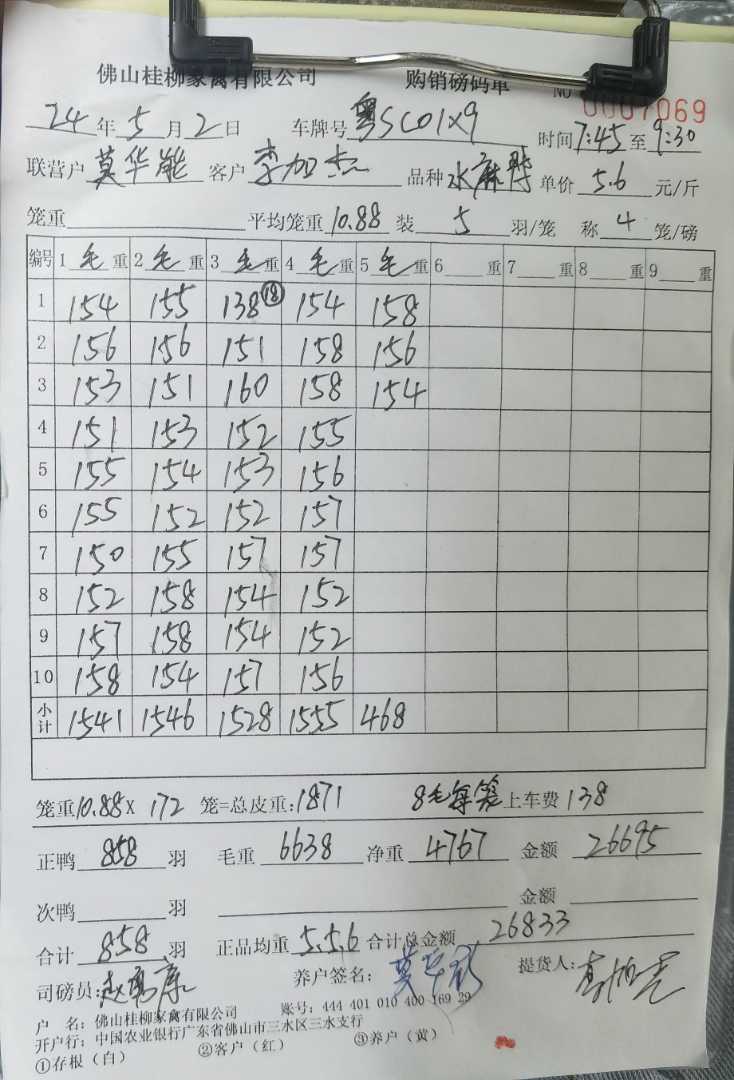 佛山桂柳家禽有限公司 购销磅码单 NO 0007069
24年5月2日 车牌号 粤SC01X9 时间7:45至9:30
联营户 莫华能 客户 李加杰 品种 水麻鸭 单价 5.6 元/斤
笼重 平均笼重 10.88 装 5 羽/笼 称 4 笼/磅
编号 1毛重 2毛重 3毛重 4毛重 5毛重 6 重 7 重 8 重 9 重
1 154 155 138⑱ 154 158
2 156 156 151 158 156
3 153 151 160 158 154
4 151 153 152 155
5 155 154 153 156
6 155 152 152 157
7 150 155 157 157
8 152 158 154 152
9 157 158 154 152
10 158 154 157 156
小计 1541 1546 1528 1555 468
笼重10.88X 172 笼=总皮重:1871 8毛每笼 上车费 138
正鸭 858 羽 毛重 6638 净重 4767 金额 26695
次鸭 羽 金额
合计 858 羽 正品均重 5.5.6 合计总金额 26833
司磅员: 养户签名: 莫华能 提货人:
户 名: 佛山桂柳家禽有限公司 账号: 444 401 010 400 169 29
开户行: 中国农业银行广东省佛山市三水区三水支行
①存根（白） ②客户（红） ③养户（黄）